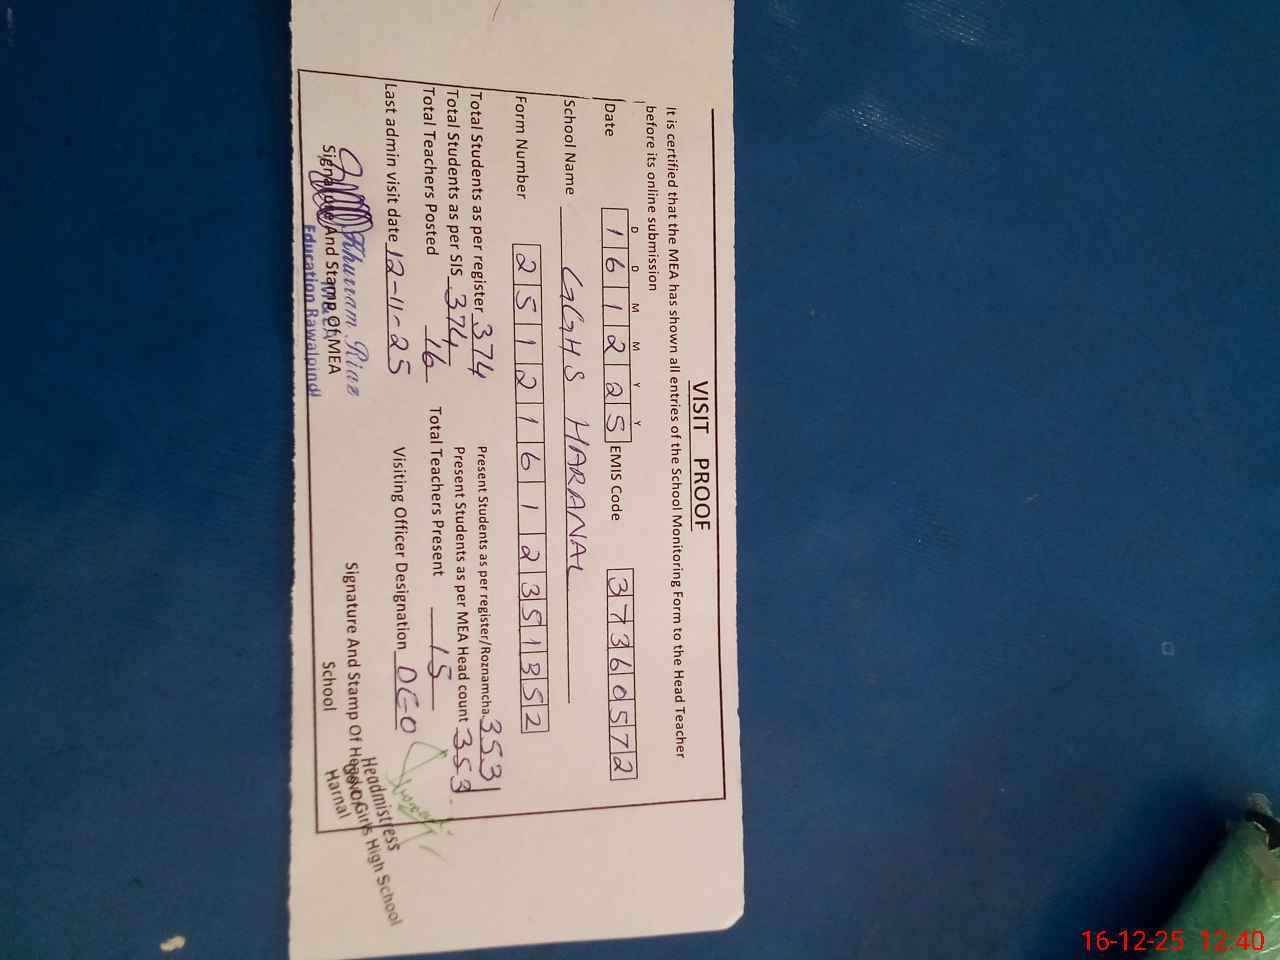 VISIT PROOF
It is certified that the MEA has shown all entries of the School Monitoring Form to the Head Teacher
before its online submission
D D M M Y Y
Date 1 6 1 2 2 5 EMIS Code 3 7 3 6 0 5 7 2
School Name GGHS HARANAL
Form Number 2 5 1 2 1 6 1 2 3 5 1 3 5 2
Total Students as per register 374 Present Students as per register/Roznamcha 353
Total Students as per SIS 374 Present Students as per MEA Head count 353
Total Teachers Posted 16 Total Teachers Present 15
Last admin visit date 12-11-25 Visiting Officer Designation DEO
Khurram Riaz
Signature And Stamp Of MEA
Education Rawalpindi
Signature And Stamp Of Head Of
School
Headmistress
Govt. Girls High School
Harnal
16-12-25 12:40